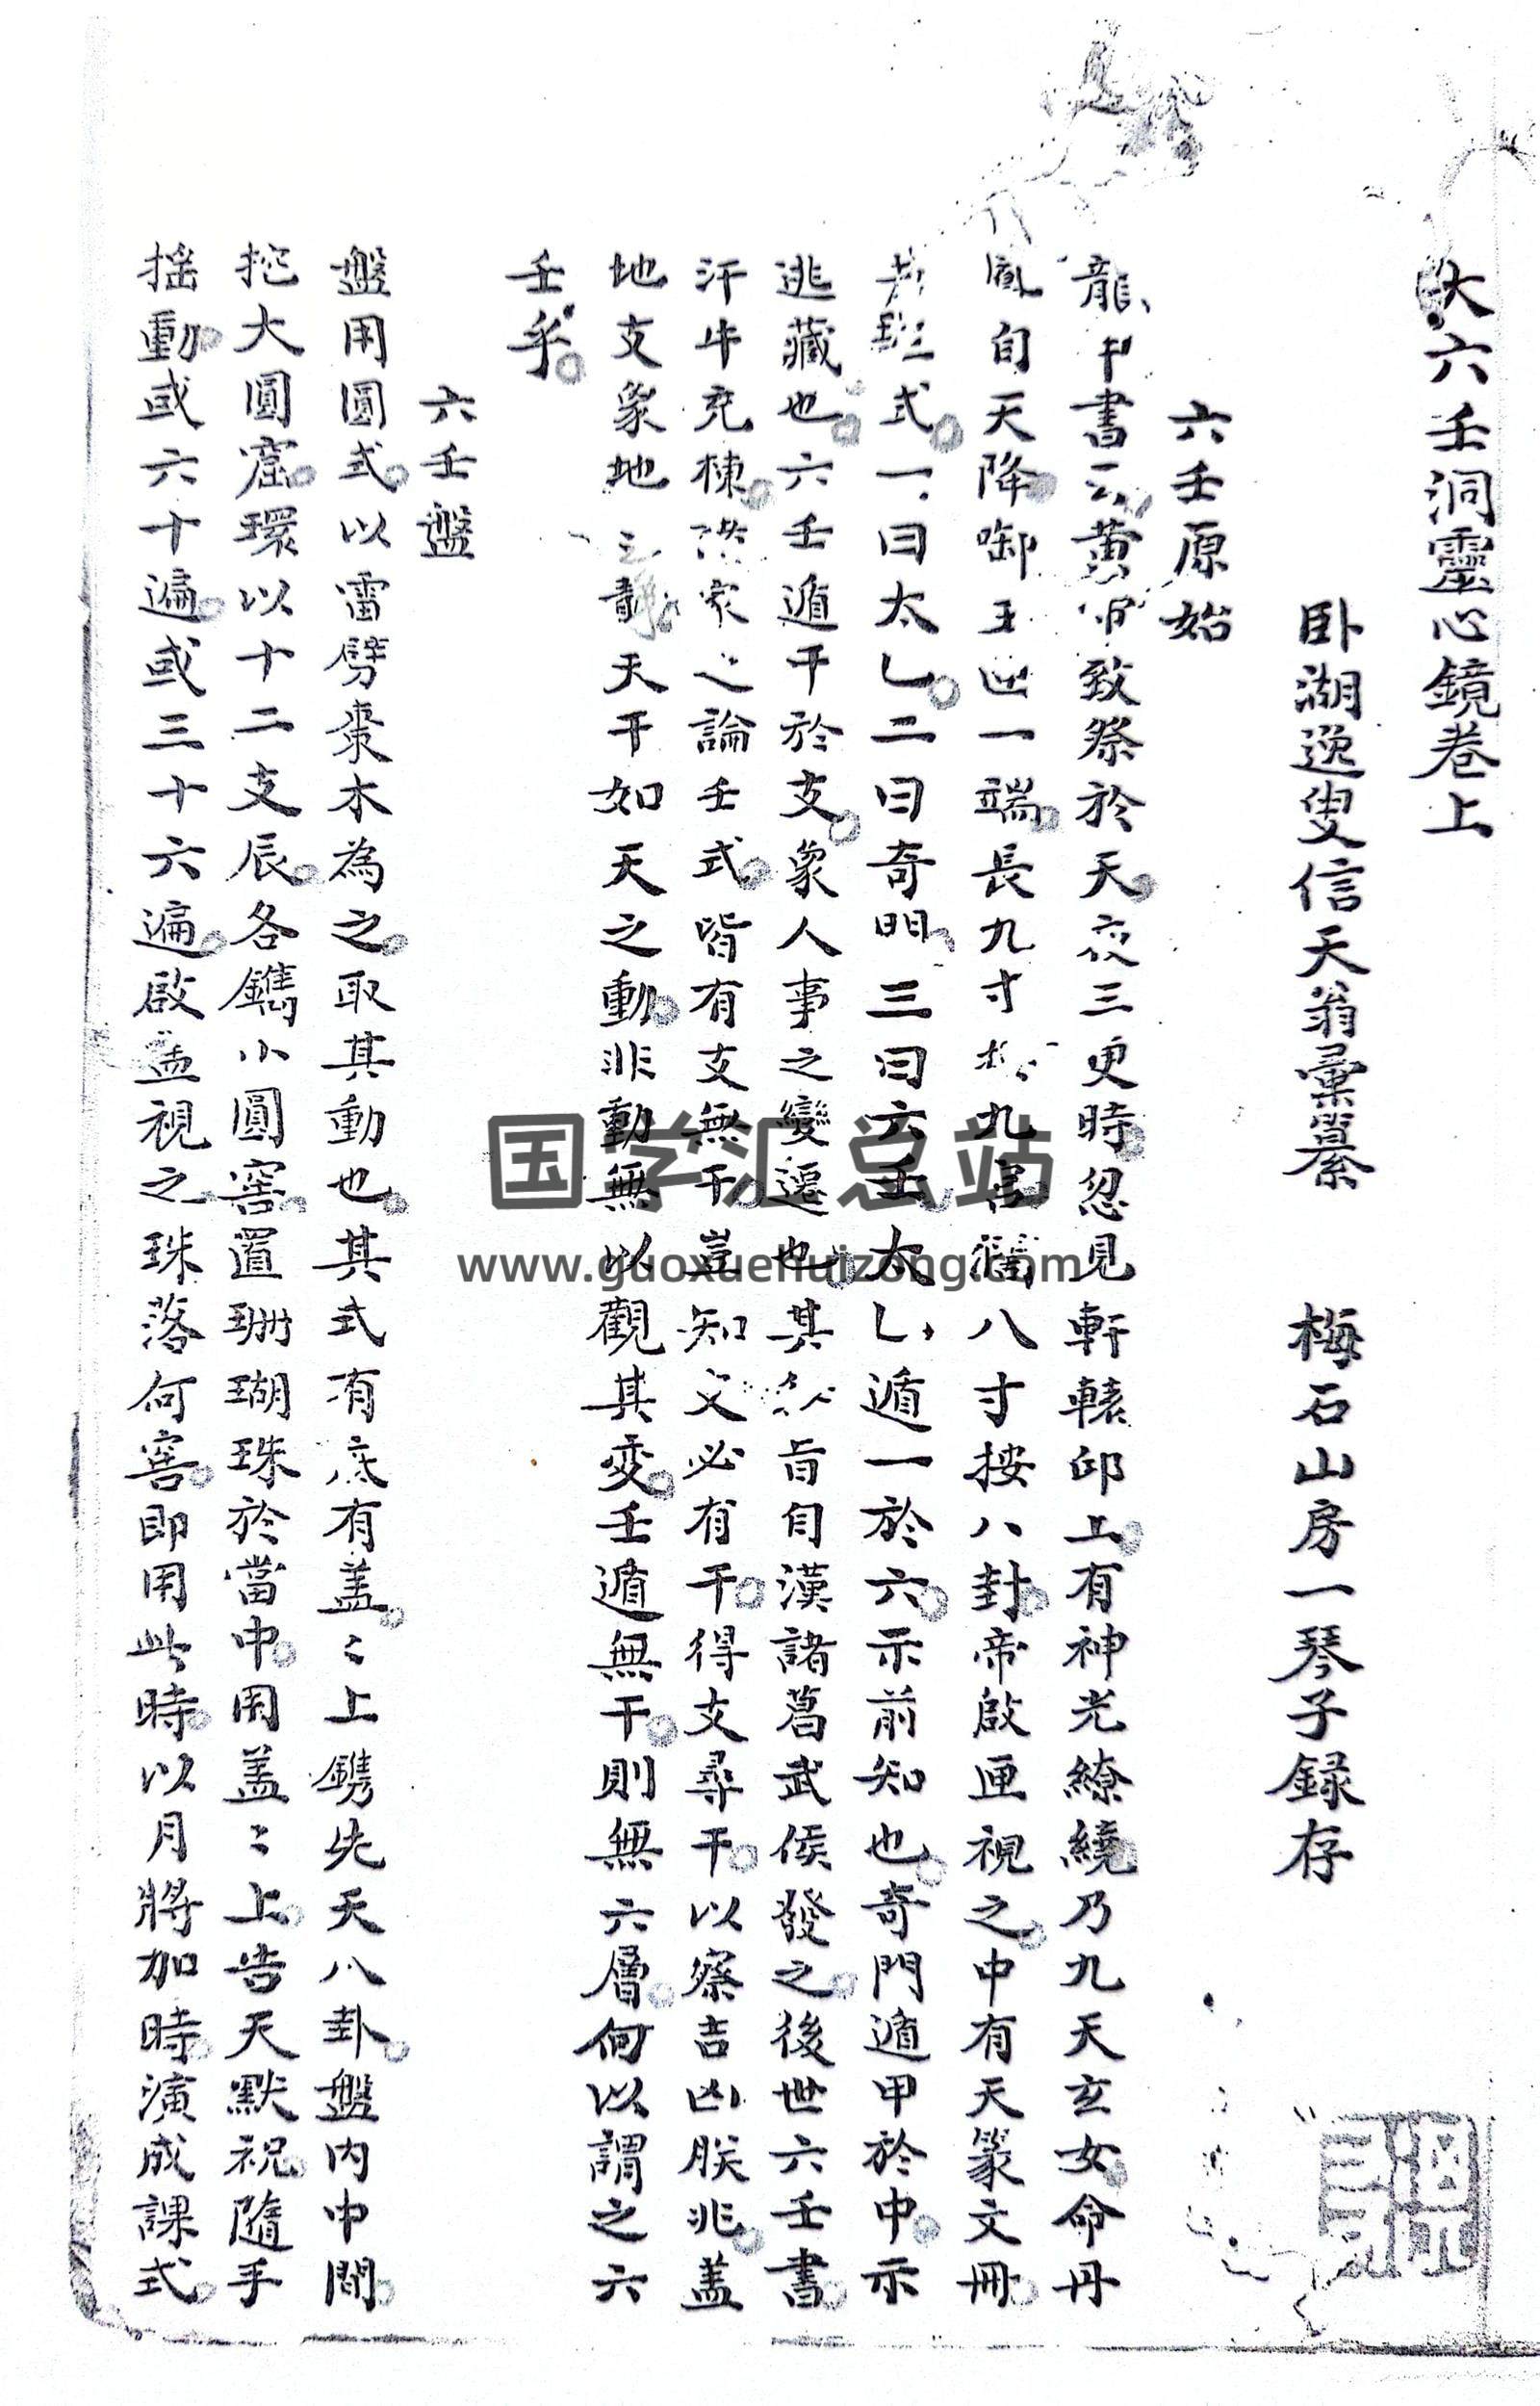 大六壬洞靈心鏡卷上
卧湖逸叟信天翁彙纂 梅石山房一琴子録存
六壬原始
龍甲書云黄帝致祭於天夜三更時忽見軒轅邱上有神光繚繞乃九天玄女命丹
鳳自天降啣玉匣一端長九寸按九宫濶八寸按八封帝啟匣視之中有天篆文冊
式一曰太乙二曰奇門三曰六壬太乙遁一於六示前知也奇門遁甲於中示
逃藏也六壬遁干於支象人事之變遷也其旨自漢諸葛武侯發之後世六壬書
汗牛充棟家之論壬式皆有支無干豈知文必有干得支尋干以察吉凶朕兆蓋
地支象地之靜天干如天之動非動無以觀其変壬遁無干則無六層何以謂之六
壬乎
六壬盤
盤用圓式以雷劈棗木為之取其動也其式有底有盖〻上鐫先天八卦盤内中間
挖大圓窟環以十二支辰各鐫小圓窖置珊瑚珠於當中用盖〻上告天默祝隨手
摇動或六十遍或三十六遍啟盖視之珠落何窖即用此時以月將加時演成課式
国学汇总站
www.guoxuehuizong.com